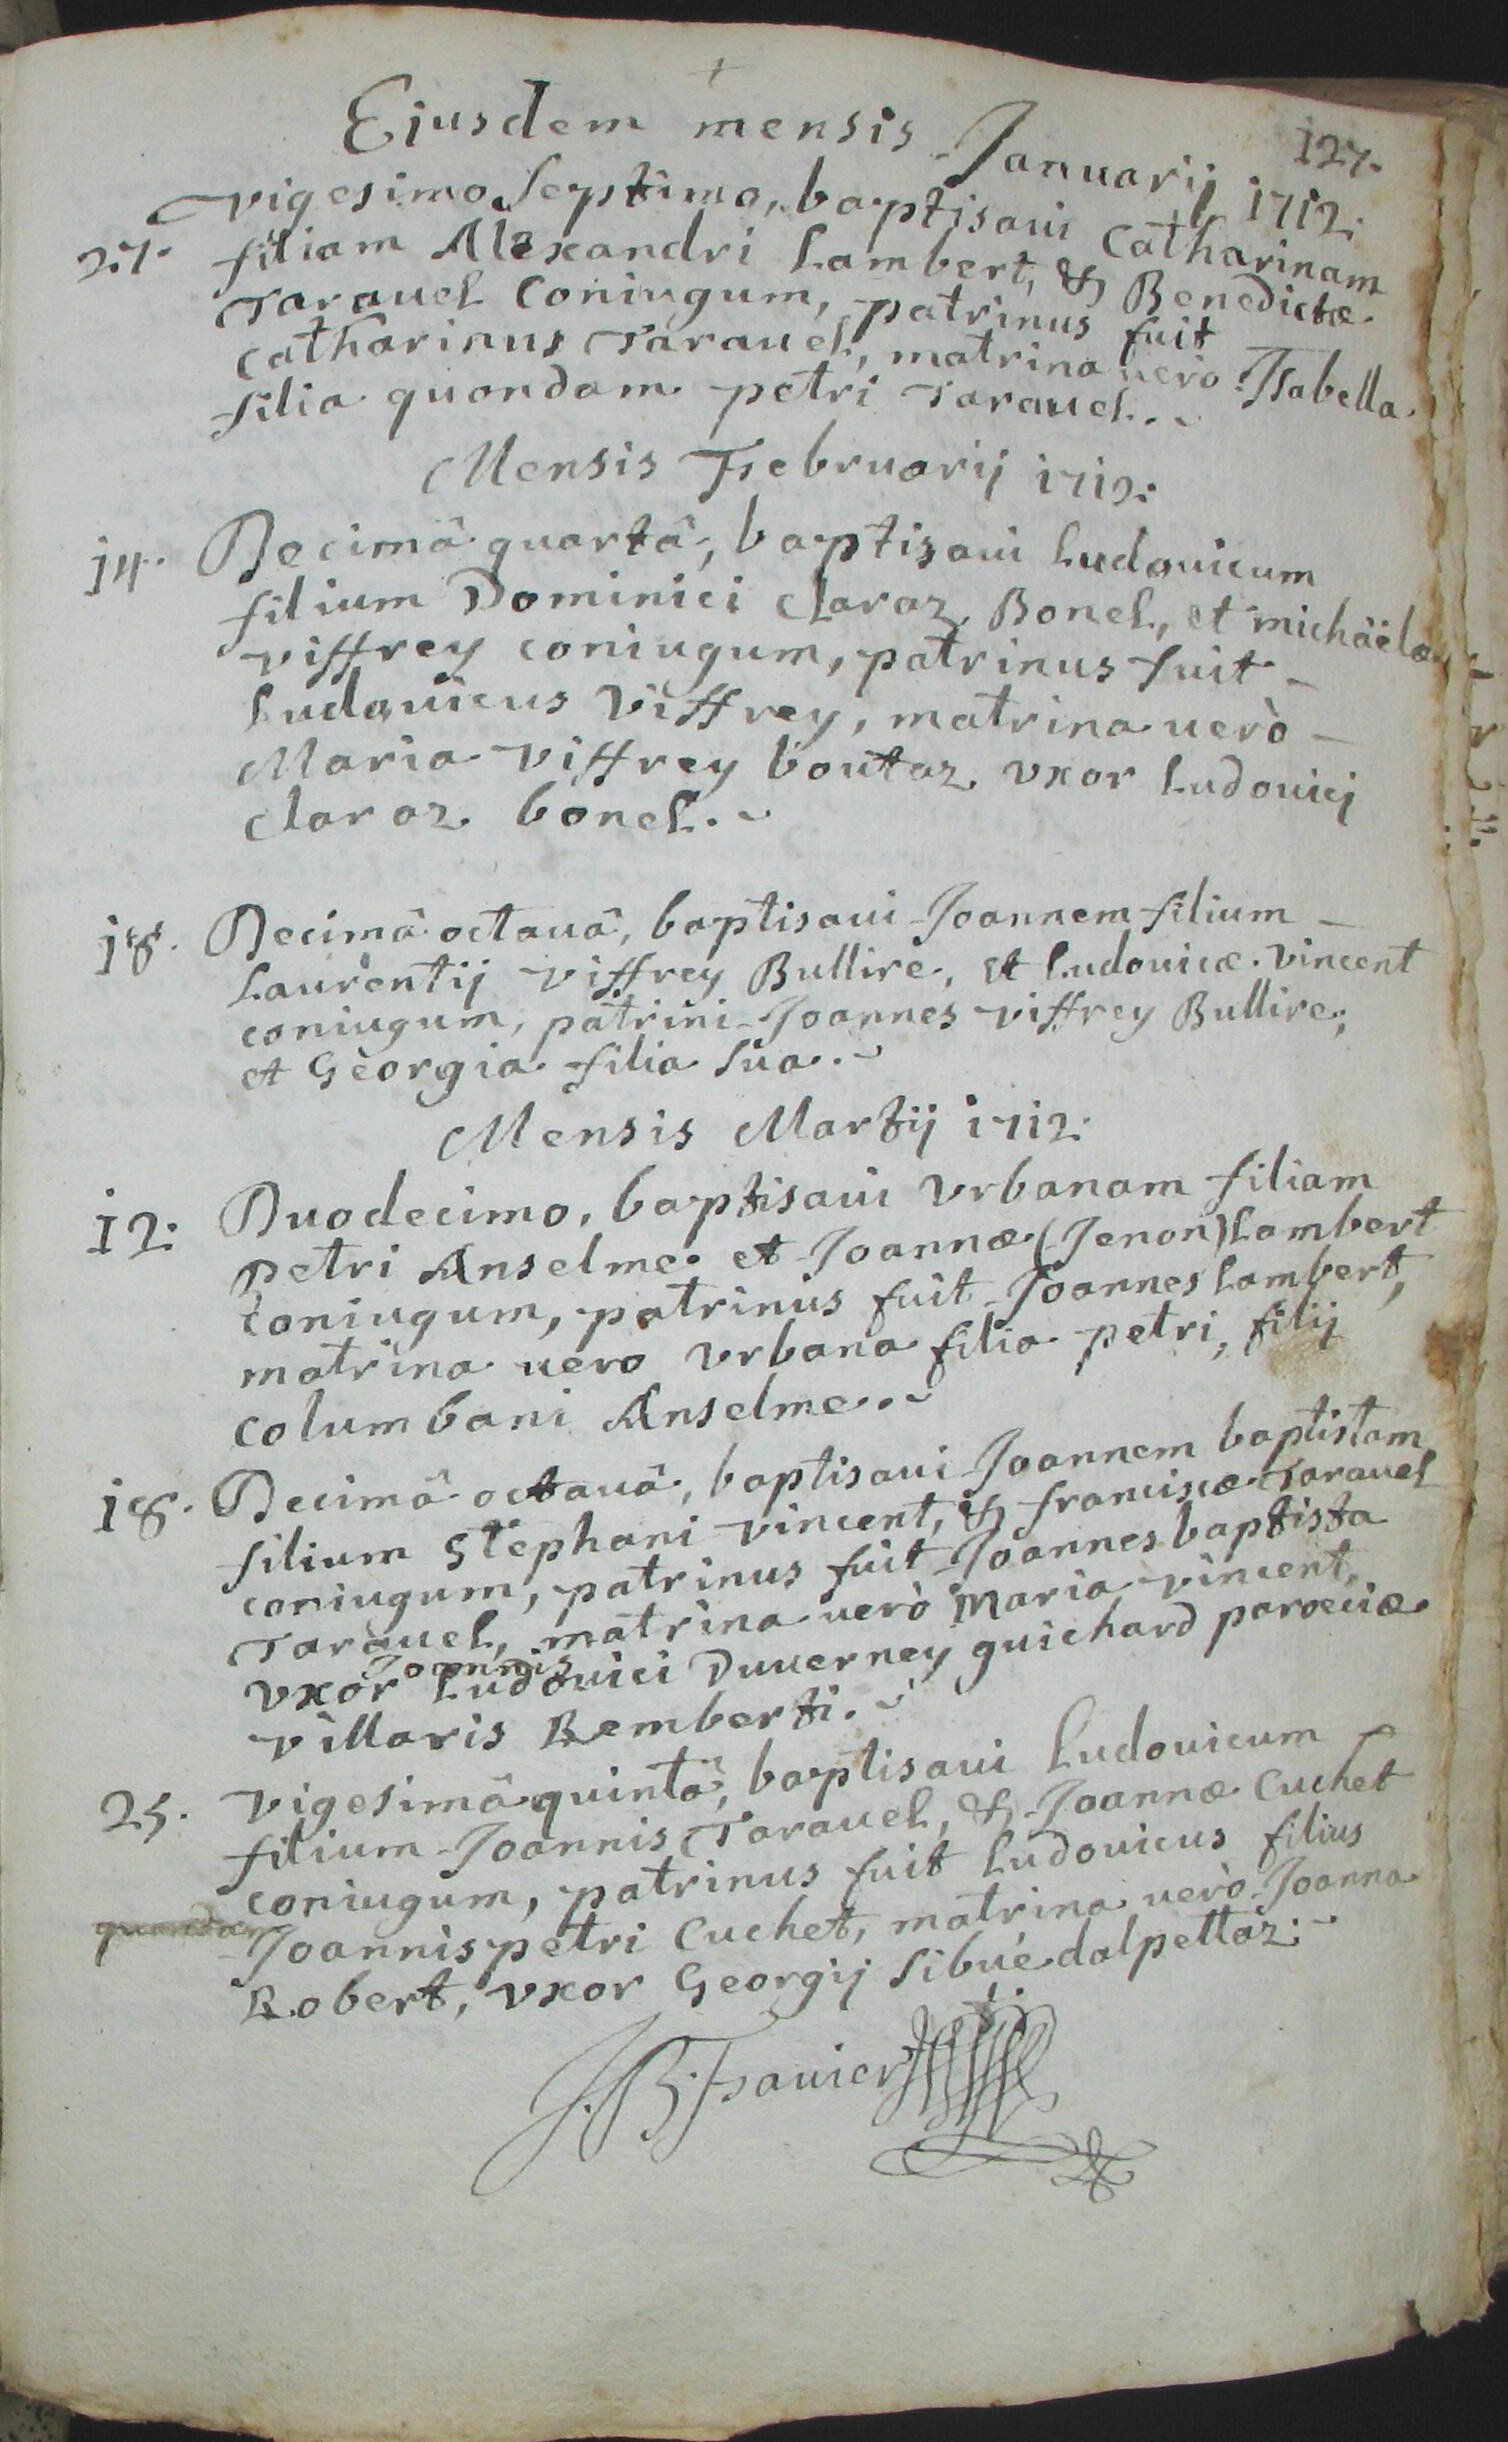 127.
Ejusdem mensis Januarij 1712.
27. Vigesimo Septimo, baptisaui Catharinam
filiam Alexandri Lambert, & Benedictæ
Tarauel Coniugum, patrinus fuit
Catharinus Tarauel, matrina uerò Isabella
filia quondam petri Tarauel.
Mensis Februarij 1712.
14. Decimâ quartâ, baptisaui Ludouicum
filium Dominici Claraz Bonel, et michäelæ
Viffrey coniugum, patrinus fuit
Ludouicus Viffrey, matrina uerò
Maria Viffrey boutaz vxor Ludouicj
Claraz bonel.
18. Decimâ octauâ, baptisaui Joannem filium
Laurentij Viffrey Bullire, et Ludouicæ Vincent
coniugum, patrini Joannes Viffrey Bullire,
et Georgia filia sua.
Mensis Martij 1712.
12. Duodecimo, baptisaui Vrbanam filiam
Petri Anselme et Joannæ (Jenon) Lambert
Coniugum, patrinus fuit Joannes Lambert,
matrina uero Vrbana filia petri, filij
Columbani Anselme.
18. Decimâ octauâ, baptisaui Joannem baptistam
filium Stephani Vincent, & franciscæ Tarauel
coniugum, patrinus fuit Joannes baptista
Tarauel, matrina uerò Maria Vincent,
Joannis
Vxor Ludouici Duuerney guichard paroeciæ
Villaris Remberti.
25. Vigesimâ quintâ, baptisaui Ludouicum
filium Joannis Tarauel, & Joannæ Cuchet
coniugum, patrinus fuit Ludouicus filius
quondam Joannis petri Cuchet, matrina uerò Joanna
Robert, vxor Georgij Sibué dalpettaz.
J. B. Fauier